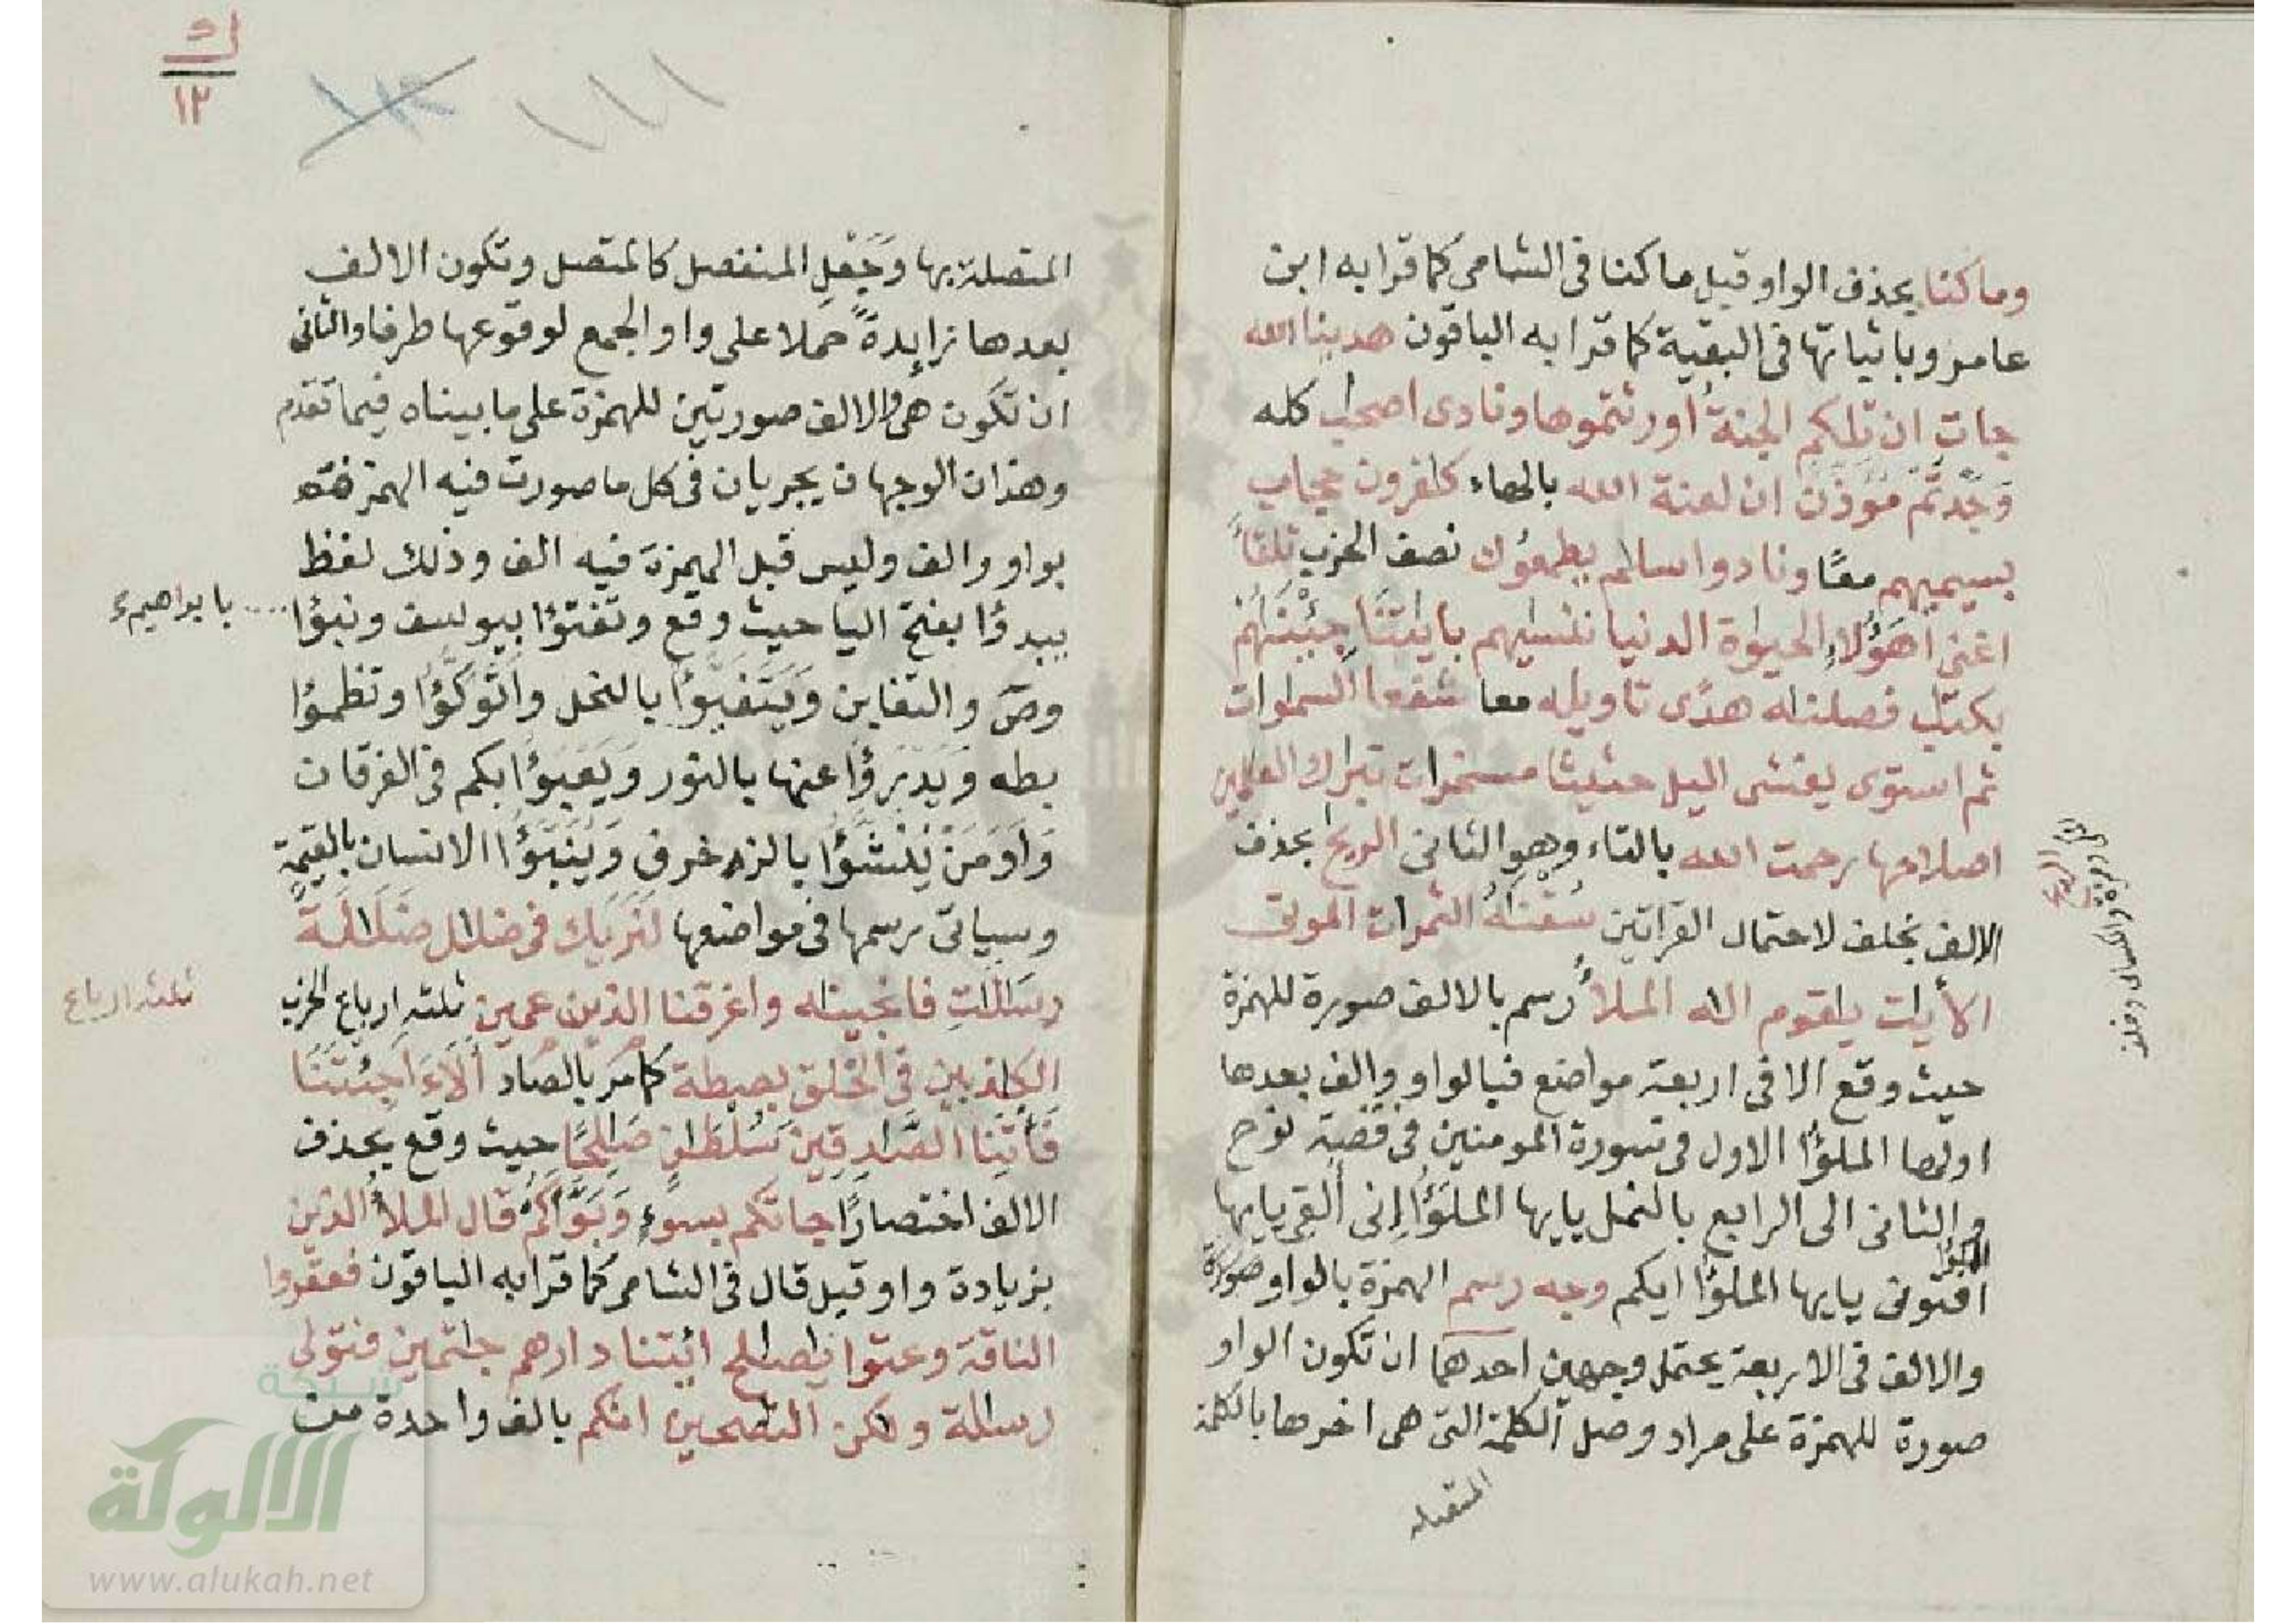 وما كنا بحذف الواو قبل ما كنا فى الشامى كما قرا به ابن
عامر وباثباتها فى البقية كما قرا به الباقون هدينا الله
جات ان تلكم الجنة اورثتموها ونادى اصحب كله
وجدتم مؤذن ان لعنة الله بالهاء كفرون حجاب
بسيميهم معًا ونادوا سلم يطمعون نصف الحزب تلقا
اغنى اهؤلاء الحيوة الدنيا ننسيهم بايتنا جئنهم
بكتب فصلنه هدًى تاويله معا شفعا السموات
ثم استوى يغشى اليل حثيثا مسخرات تبرك العلمين
اصلاحها رحمت الله بالتاء وهو الثانى الريح بحذف
الالف بخلف لاحتمال القراتين سقنه الثمرات الموتى
الأيت يقوم اله الملأ رسم بالالف صورة للهمزة
حيث وقع الا فى اربعة مواضع فبالواو والف بعدها
اولها الملؤا الاول فى سورة المومنين فى قصة نوح
والثانى الى الرابع بالنمل يايها الملؤا انى القى يايها
الملؤا
افتونى يايها الملؤا ايكم وجه رسم الهمزة بالواو صورة
والالف فى الاربعة يحتمل وجهين احدهما ان تكون الواو
صورة للهمزة على مراد وصل الكلمة التى هى اخرها بالكلمة
المتصلة
المتصلة بها وجعل المنفصل كالمتصل وتكون الالف
بعدها زايدة حملا على واو الجمع لوقوعها طرفا والثانى
ان تكون هى والالف صورتين للهمزة على ما بيناه فيما تقدم
وهذان الوجهان يجريان فى كل ما صورت فيه الهمزة
بواو والف وليس قبل الهمزة فيه الف وذلك لفظ
يبدؤا بفتح اليا حيث وقع وتفتؤا بيوسف ونبؤا
بابراهيم
وص والتغابن ويتفيؤا بالنحل واتوكؤا وتظمؤا
بطه ويدرؤا عنها بالنور ويعبؤا بكم فى الفرقان
واومن ينشؤا بالزخرف وينبؤا الانسان بالقيمة
وسياتى رسمها فى مواضعها لنريك فى ضلل ضللة
رسلت فانجينه واغرقنا الذين عمين ثلثة ارباع الحزب
ثلثة ارباع
الكذبين فى الخلق بصطة كما مر بالصاد الاء اجئتنا
فأتنا الصدقين سلطن صلحًا حيث وقع بحذف
الالف اختصارًا جاتكم بسوء وبوأكم قال الملأ الذين
بزيادة واو قبل قال فى الشامى كما قرا به الباقون فعقروا
الناقة وعتوا يصلح ائتنا دارهم جثمين فتولى
رسالة ولكن النصحين انكم بالف واحدة من
١١١
١٢
شبكة
الألوكة
www.alukah.net